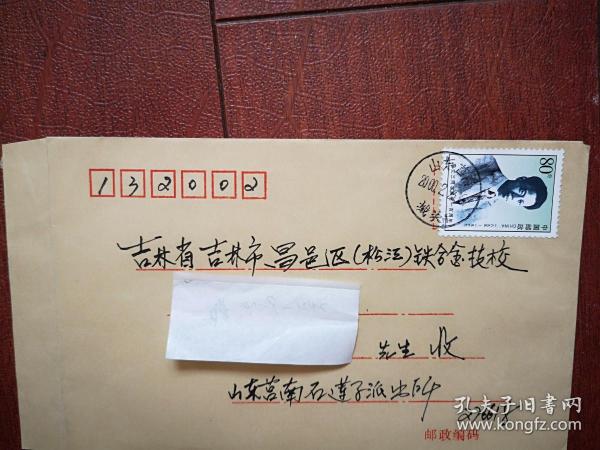 132002
80分
中国邮政 CHINA
山东
吉林省吉林市昌邑区(松江)铁合金技校
先生 收
山东莒南石莲子派出所
邮政编码
孔夫子旧书网
kongfz.com